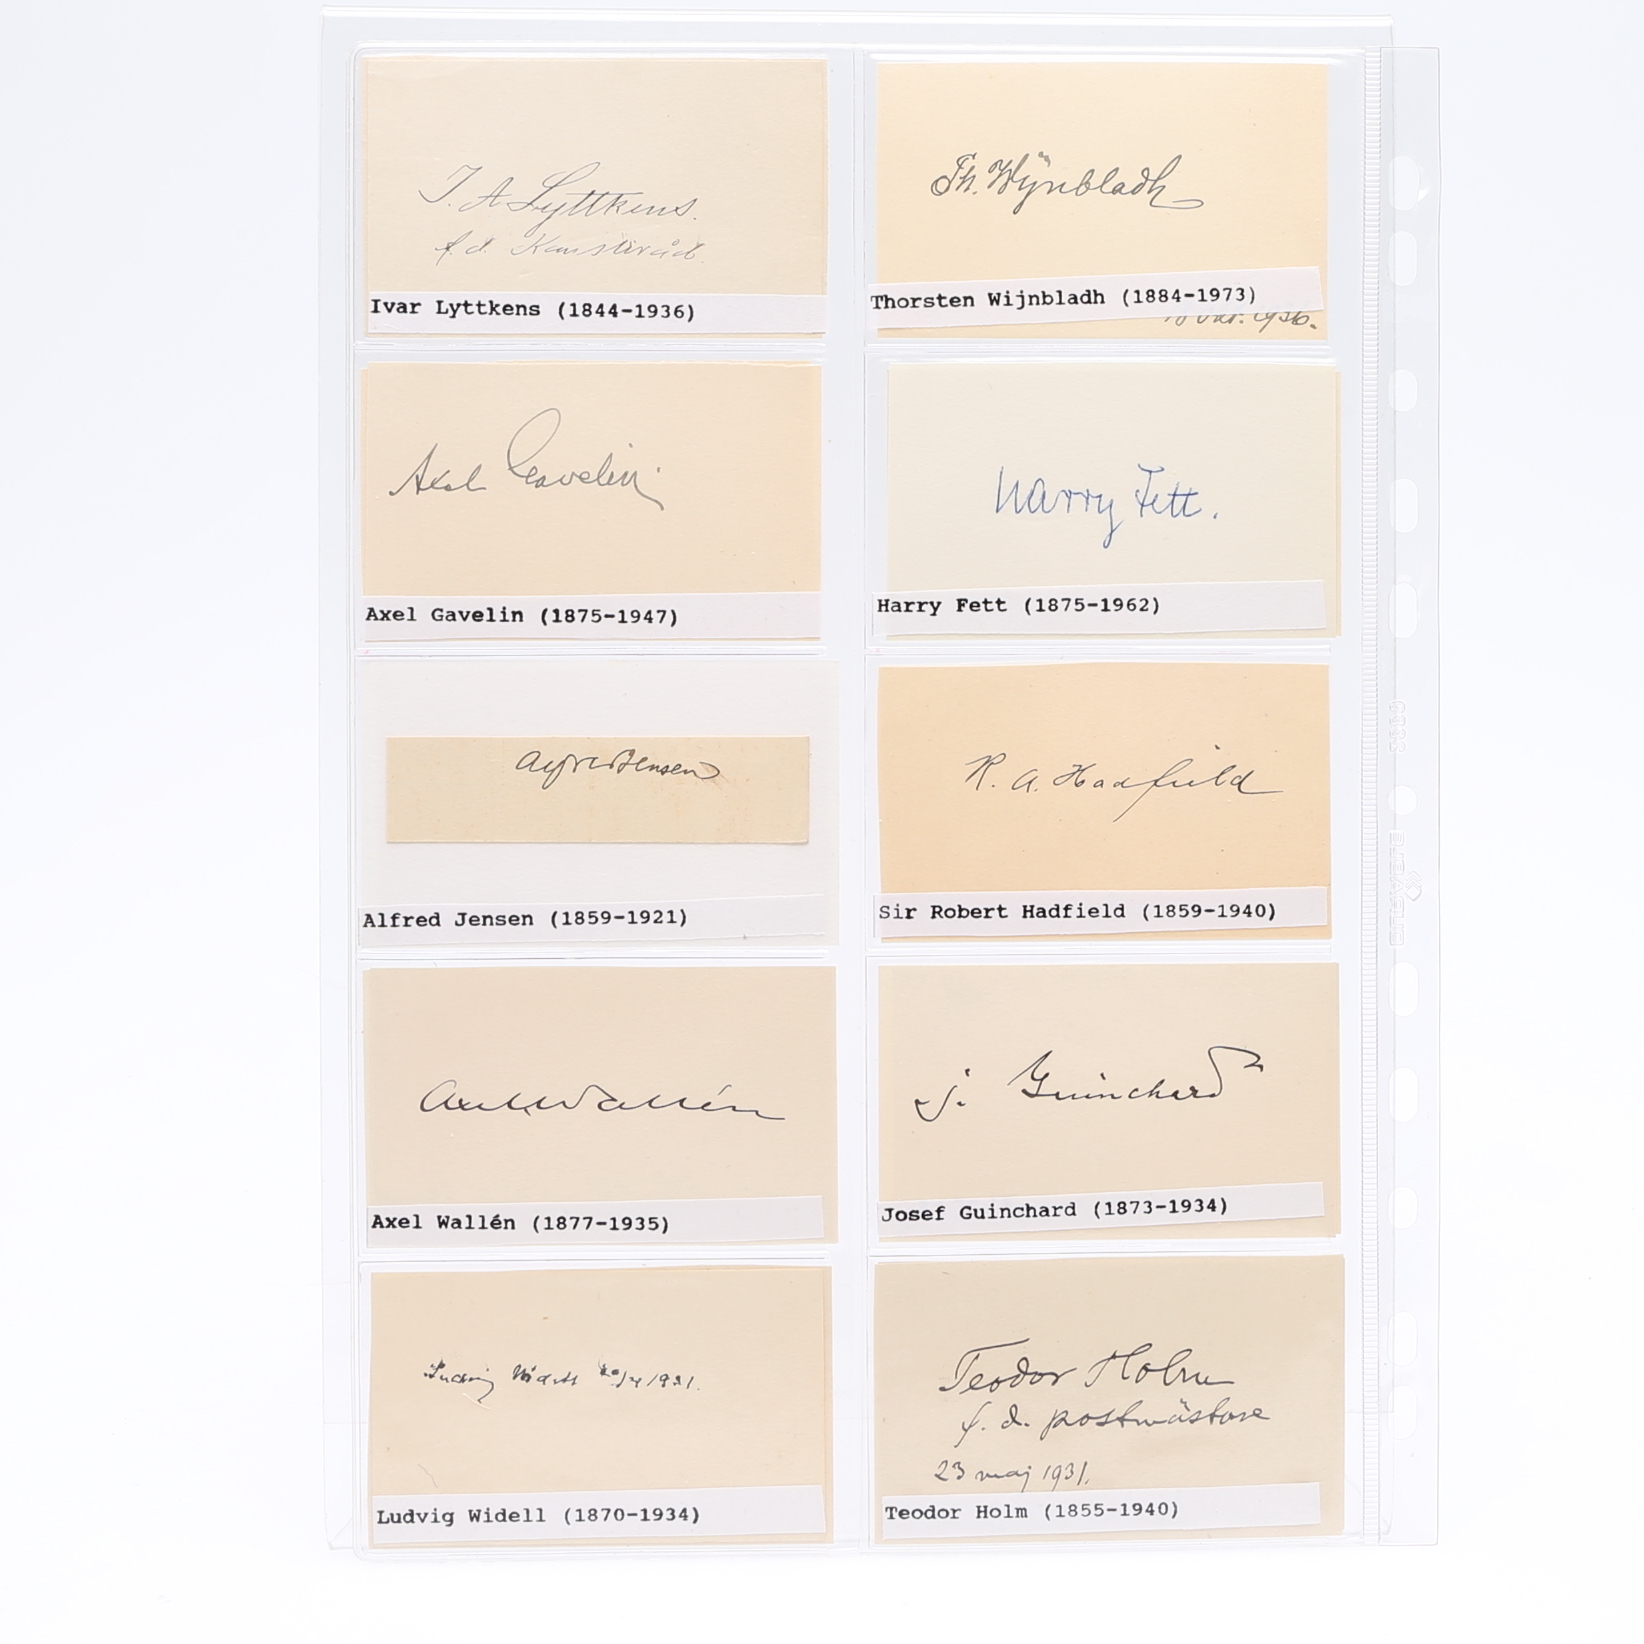 I. A Lyttkens.
f. d. Kansliråd.
Ivar Lyttkens (1844-1936)
Th. Wijnbladh
1936.
Thorsten Wijnbladh (1884-1973)
Axel Gavelin
Axel Gavelin (1875-1947)
Harry Fett.
Harry Fett (1875-1962)
Alfred Jensen
Alfred Jensen (1859-1921)
R. A. Hadfield
Sir Robert Hadfield (1859-1940)
Axel Wallén
Axel Wallén (1877-1935)
J. Guinchard
Josef Guinchard (1873-1934)
Ludvig Widell 1931.
Ludvig Widell (1870-1934)
Teodor Holm
f. d. postmästare
23 maj 1931.
Teodor Holm (1855-1940)